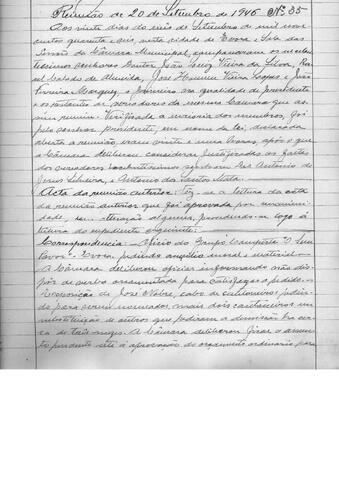 Reunião de 20 de Setembro de 1946 Nº 35
Aos vinte dias do mês de Setembro de mil nove-
centos quarenta e seis, nesta cidade de Evora e Sala das
Sessões da Câmara Municipal, compareceram os excelen-
tissimos senhores Doutor João Luiz Vieira da Silva, Ra-
ul Calado de Almeida, José Vieira Lopes e João
Pereira Marques, o primeiro na qualidade de presidente
e os restantes de vereadores da mesma Camara que as-
sim reuniu. Verificada a maioria dos membros, foi
pelo senhor presidente, em nome da lei, declarada
aberta a reunião eram vinte e uma horas, após o que
a Câmara deliberou considerar justificadas as faltas
dos vereadores excelentissimos senhores António de
Jesus e Antonio dos Santos Mata.
Acta da reunião anterior: Fez-se a leitura da acta
da reunião anterior que foi aprovada por unanimi-
dade, sem alteração alguma, procedendo-se logo à
leitura do expediente seguinte:
Correspondencia: - Oficio do Grupo Campista "O Sem
Pavor" - Evora, pedindo auxilio moral e material. -
A Câmara deliberou oficiar informando não dis-
pôr de verba orçamentada para satisfazer o pedido. -
Exposição de José Nobre, cabo de cantoneiros pedin-
do para serem nomeados mais dois cantoneiros em
substituição de outros que pediram a demissão ha cer-
ca de três meses. A Câmara deliberou ficar o assun-
to pendente até à aprovação do orçamento ordinário para